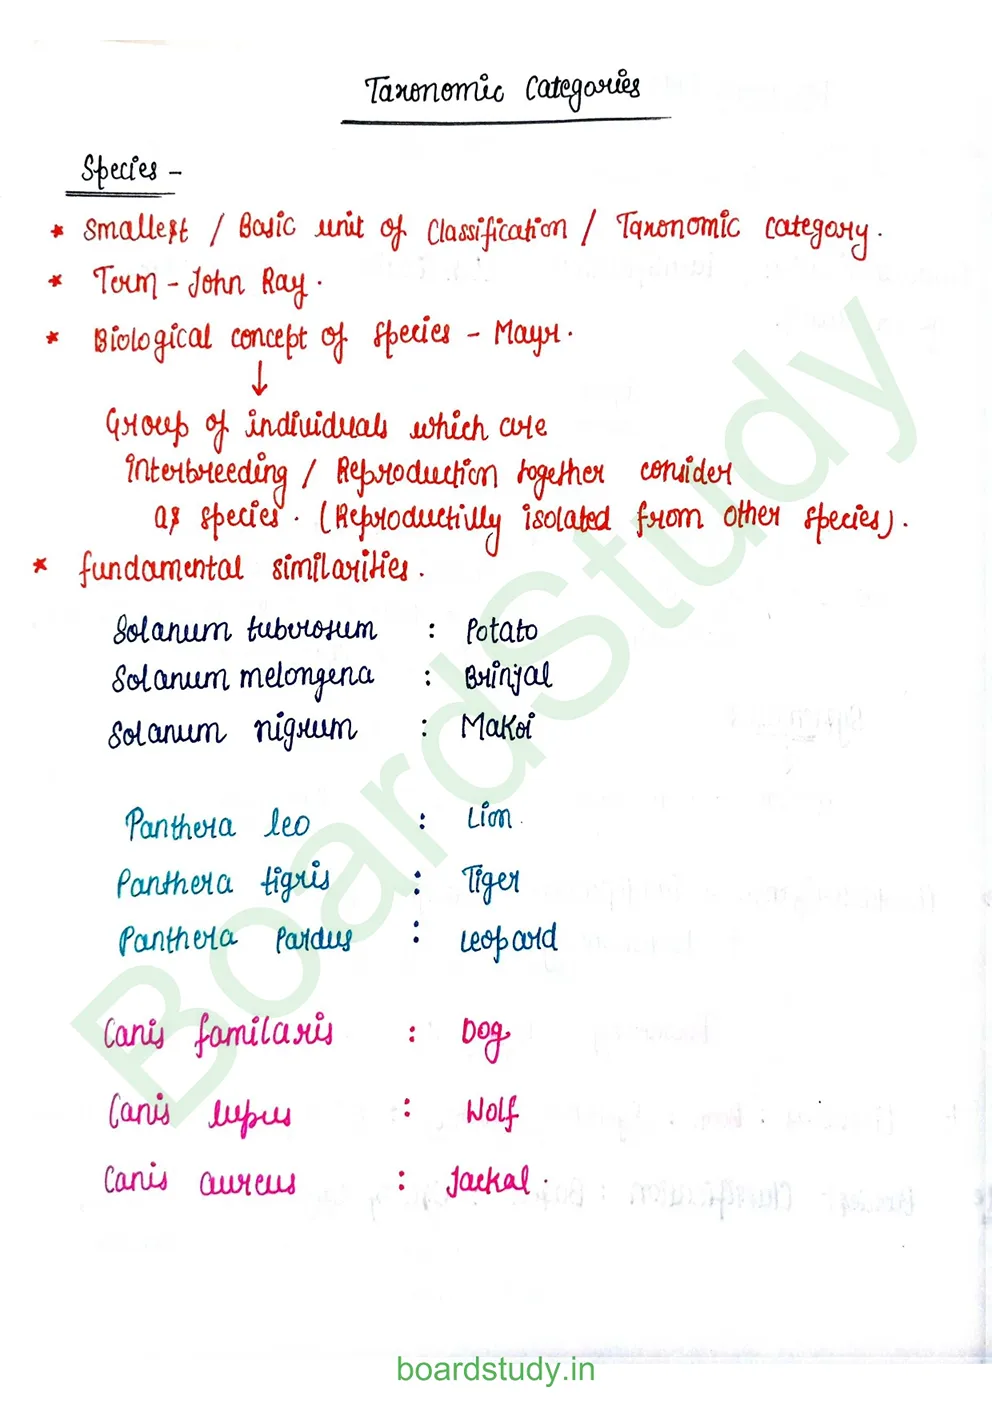 Taxonomic Categories
Species -
* Smallest / Basic unit of Classification / Taxonomic category.
* Term - John Ray.
* Biological concept of species - Mayr.
↓
Group of individuals which are
interbreeding / Reproduction together consider
as species. (Reproductivily isolated from other species).
* fundamental similarities.
Solanum tuberosum : Potato
Solanum melongena : Brinjal
Solanum nigrum : Makoi
Panthera leo : Lion.
Panthera tigris : Tiger
Panthera pardus : Leopard
Canis familaris : Dog
Canis lupus : Wolf
Canis aureus : Jackal.
BoardStudy
boardstudy.in